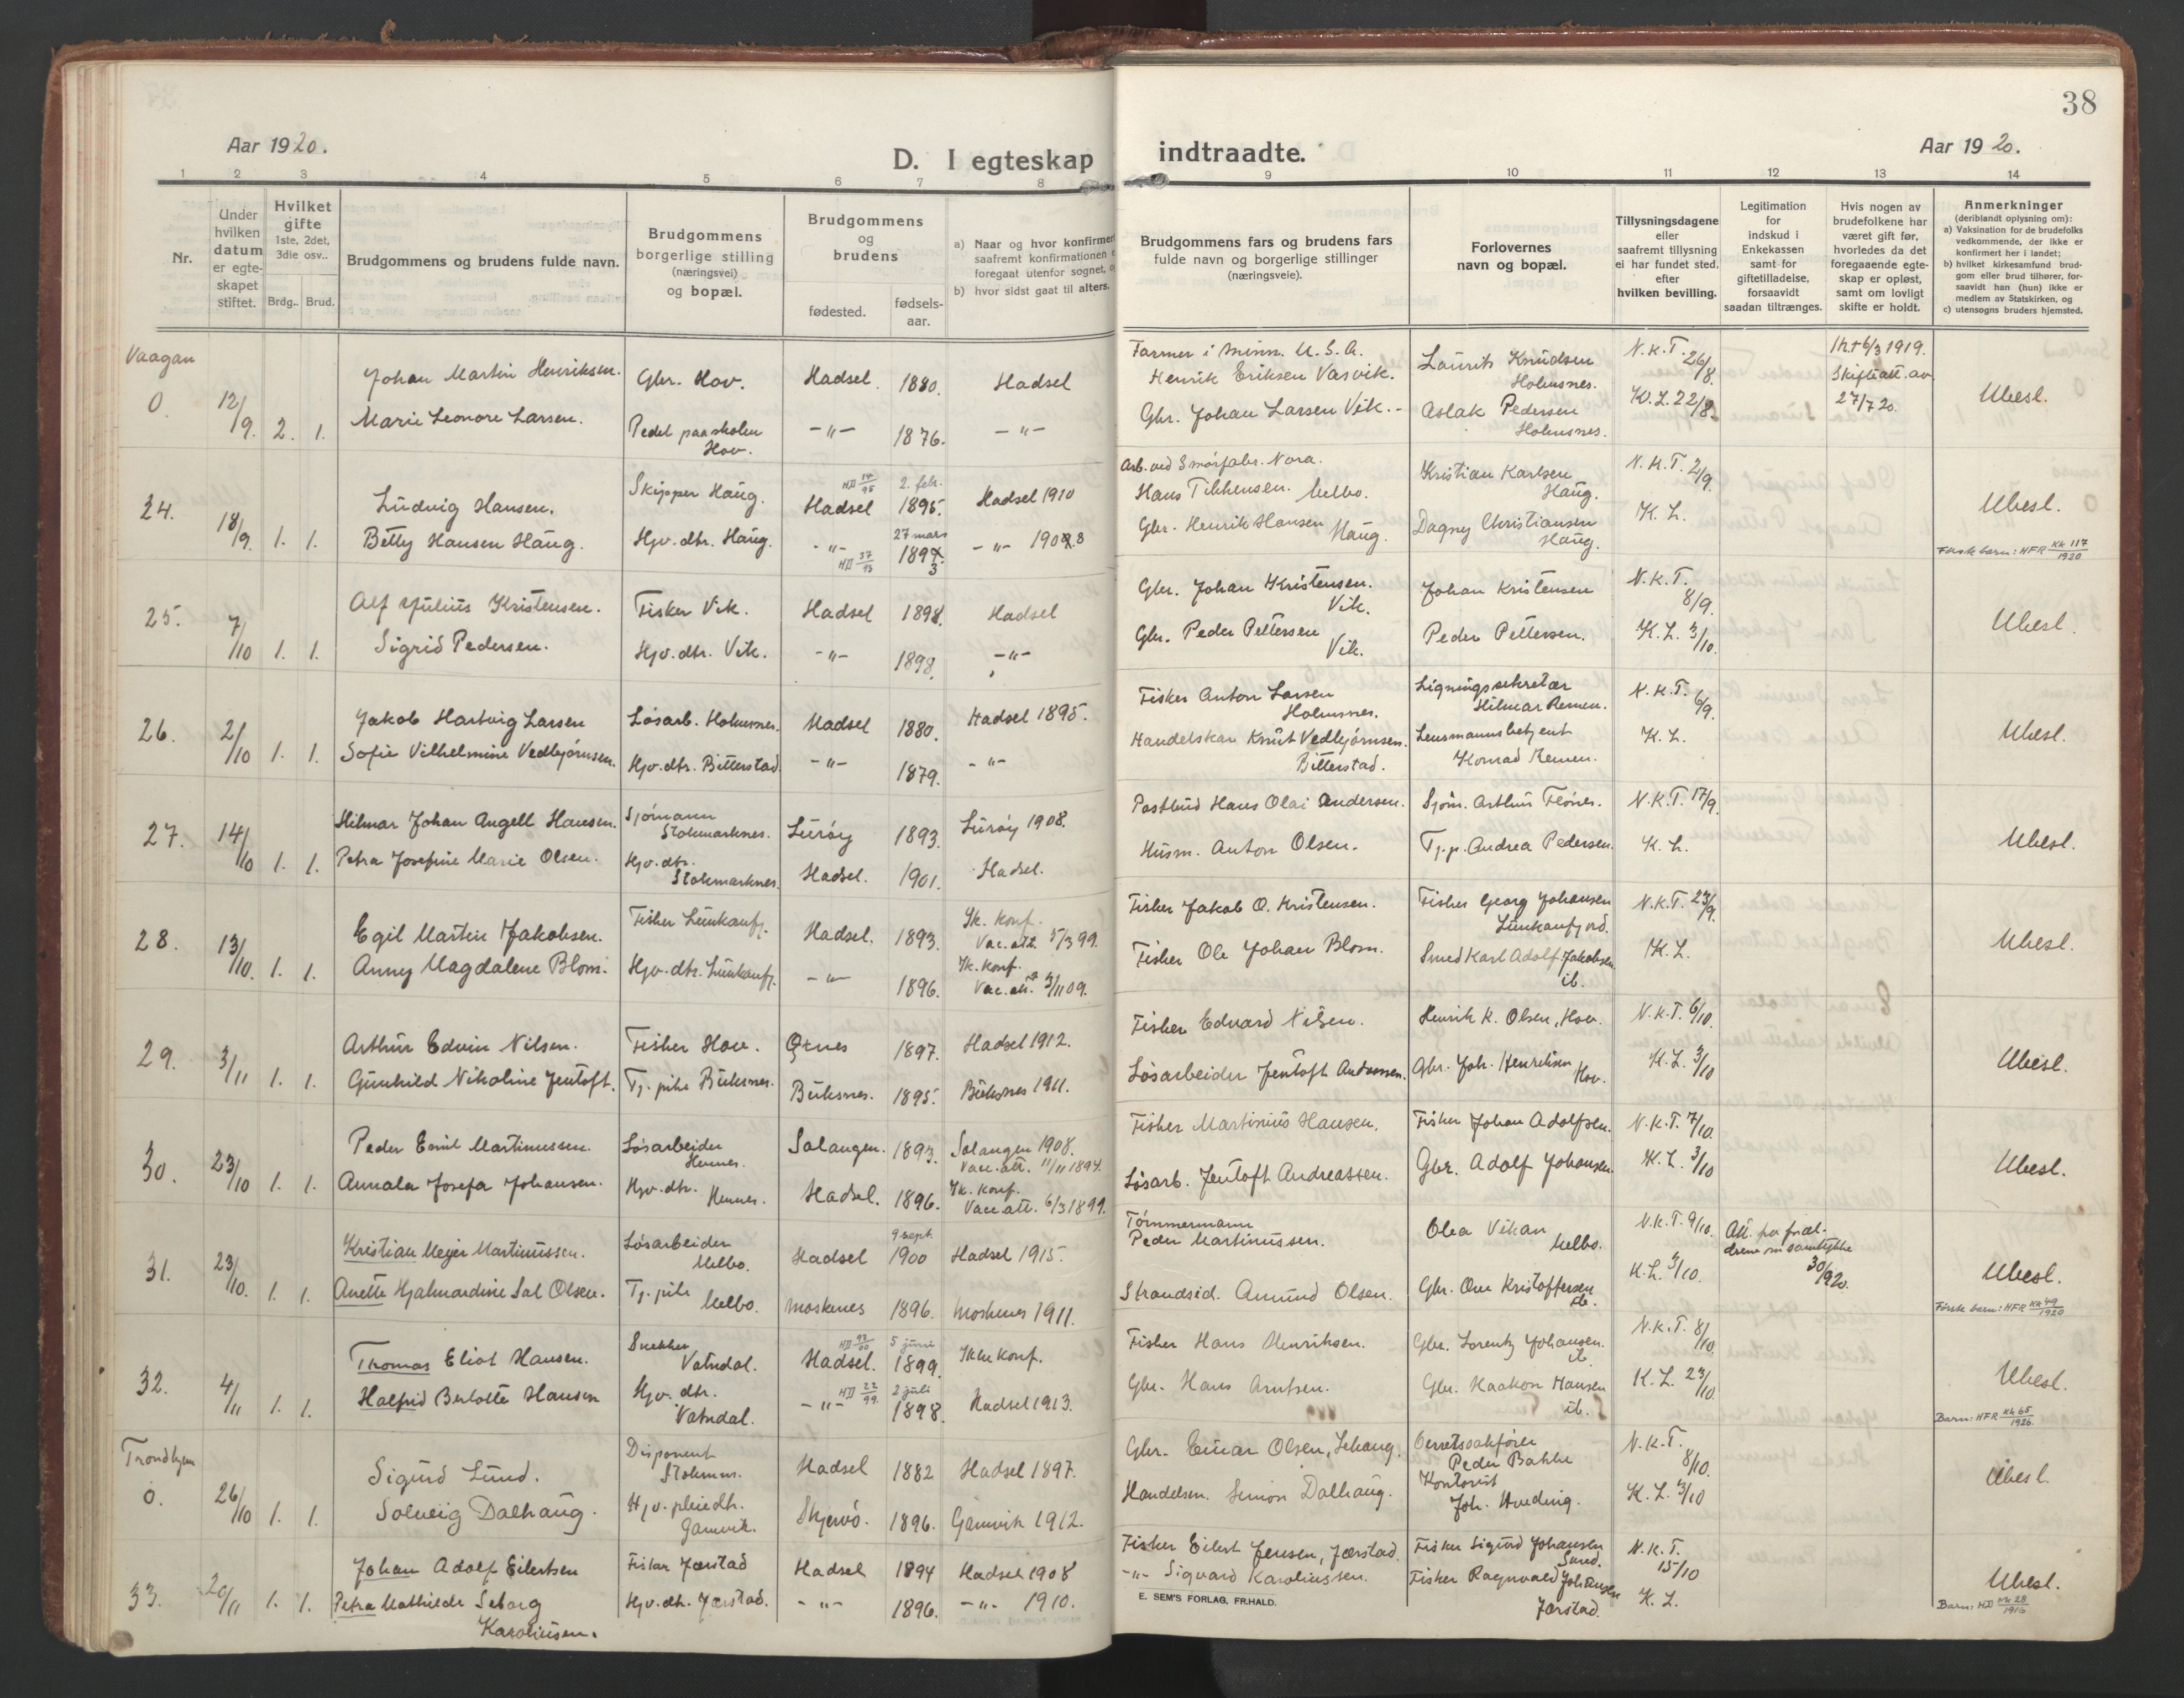 38
Aar 1920.
D. I egteskap indtraadte.
Aar 1920.
1 2 3 4 5 6 7 8 9 10 11 12 13 14
Nr.
Under hvilken datum er egteskapet stiftet.
Hvilket gifte 1ste, 2det, 3die osv..
Brdg. Brud.
Brudgommens og brudens fulde navn.
Brudgommens borgerlige stilling (næringsvei) og bopæl.
Brudgommens og brudens
fødested.
fødsels-aar.
a) Naar og hvor konfirmert
saafremt konfirmationen
foregaat utenfor sognet,
b) hvor sidst gaat til alters.
Brudgommens fars og brudens fars
fulde navn og borgerlige stillinger
(næringsveie).
Forlovernes
navn og bopæl.
Tillysningsdagene
eller
saafremt tillysning
ei har fundet sted,
efter
hvilken bevilling.
Legitimation
for
indskud i
Enkekassen
samt for
giftetilladelse,
forsaavidt
saadan tiltrænges.
Hvis nogen av
brudefolkene har
været gift før,
hvorledes da det
foregaaende egte-
skap er opløst,
samt om lovligt
skifte er holdt.
Anmerkninger
(deriblandt oplysning om):
a) Vaksination for de brudefolks
vedkommende, der ikke er
konfirmert her i landet;
b) hvilket kirkesamfund brud-
gom eller brud tilhører, for-
saavidt han (hun) ikke er
medlem av Statskirken, og
c) utensogns bruders hjemsted.
Vaagan
0. 12/9. 2. 1.
Johan Martin Henriksen. Gbr. Hov. Hadsel. 1880. Hadsel
Marie Leonore Larsen. Pedel paa skolen Hov. -"- 1876. -"-
Farmer i Minn. U.S.A.
Henrik Eriksen Vasvik. Laurits Knudsen Holmsnes. N.K.T. 26/8.
Gbr. Johan Larsen Vik. Aslak Pedersen Holmsnes. K.L. 22/8.
6/3 1919.
Skifteatt. av
27/7 20.
Ubesl.
24. 18/9. 1. 1.
Ludvig Hansen. Skipper Haug. Hadsel 2. feb. 1895. Hadsel 1910
Betty Hansen Haug. Hjv. dtr. Haug. -"- 27 mars
Arb. ved Smørfabr. Nora.
Hans Tikkensen. Melbo. Kristian Karlsen Haug. N.K.T. 2/9.
Gbr. Henrik Hansen Haug. Dagny Christiansen Haug. K.L.
Ubesl.
Første barn: HFR Kk 117/1920
25. 7/10 1. 1.
Alf Julius Kristensen. Fisker Vik. Hadsel 1898. Hadsel
Sigrid Pedersen. Hjv. dtr. Vik. -"- 1898. -"-
Gbr. Johan Kristensen. Vik. Johan Kristensen N.K.T. 8/9.
Gbr. Peder Pettersen Vik. Peder Pettersen. K.L. 3/10.
Ubesl.
26. 2/10 1. 1.
Jakob Hartvig Larsen Løsarb. Holmsnes. Hadsel 1880. Hadsel 1895.
Sofie Vilhelmine Vedbjørnsen. Hjv. dtr. Bitterstad. -"- 1879. -"-
Fisker Anton Larsen Holmsnes. Ligningssekretær Hilmar Remen. N.K.T. 6/9.
Handelskar Knut Vedbjørnsen. Bitterstad. Lensmannsbetjent Konrad Remen. K.L.
Ubesl.
27. 14/10 1. 1.
Hilmar Johan Angell Hansen. Sjømann Stokmarknes. Lurøy 1893. Lurøy 1908.
Petra Josefine Marie Olsen. Hjv. dtr. Stokmarknes. Hadsel. 1901. Hadsel.
Postbud Hans Olai Andersen. Sjøm. Arthur Flønes. N.K.T. 17/9.
Husm. Anton Olsen. Tj.p. Andrea Pedersen. K.L.
Ubesl.
28. 13/10. 1. 1.
Egil Martin Jakobsen. Fisker Lunkanfj. Hadsel. 1893. Ik. konf. Vac. att. 5/3 99.
Anny Magdalene Blom. Hjv. dtr. Lunkanfj. -"- 1896. Ik. konf. Vac. att. 3/11 09.
Fisker Jakob O. Kristensen. Fisker Georg Johansen Lunkanfjord. N.K.T. 23/9.
Fisker Ole Johan Blom. Smed Karl Adolf Jakobsen ib. K.L.
Ubesl.
29. 3/11 1. 1.
Arthur Edvin Nilsen. Fisker Hov. 1897. Hadsel 1912.
Gunhild Nikoline Jentoft. Tj. pike Buksnes. Buksnes. 1895. Buksnes 1911.
Fisker Edvard Nilsen. Henrik K. Olsen, Hov. N.K.T. 6/10.
Løsarbeider Jentoft Andersen. Gbr. Joh. Henriksen Hov. K.L. 3/10
Ubesl.
30. 23/10 1. 1.
Peder Emil Martinussen. Løsarbeider Hennes. Salangen. 1893. Salangen 1908. Vacc. att. 11/11 1894.
Annala Josefa Johansen. Hjv. dtr. Hennes. Hadsel. 1896. Ik. konf. Vacc att. 6/3 1899.
Fisker Martinius Hansen. Fisker Johan Adolfsen. N.K.T. 7/10.
Løsarb. Jentoft Andreassen. Gbr. Adolf Johansen. K.L. 3/10
Ubesl.
31. 23/10. 1. 1.
Kristian Meyer Martinussen. Løsarbeider Melbo. Hadsel 9 sept. 1900 Hadsel 1915.
Anette Hjalmardine Sal Olsen. Tj. pike Melbo. Moskenes 1896. Moskenes 1911.
Tømmermann
Peder Martinussen. Olea Vikan Melbo. N.K.T. 9/10.
Strandsid. Amund Olsen. Gbr. Ove Kristoffersen ib. K.L. 3/10.
Att. fra foreldrene om samtykke 30/9 20.
Ubesl.
Første barn: HFR Kk 49/1920
32. 4/11 1. 1.
Thomas Eliot Hansen. Snekker Vatndal. Hadsel. 5 juni 1899. Ikke konf.
Halfrid Berlotte Hansen Hjv. dtr. Vatndal. -"- HD 22/99. 2 juli 1898. Hadsel 1913.
Fisker Hans Henriksen. Gbr. Lorentz Johansen. ib. N.K.T. 8/10.
Gbr. Hans Arntsen. Gbr. Haakon Hansen ib. K.L. 23/10
Ubesl.
Barn: HFR Kk 65/1926.
Trondhjem
0. 26/10 1. 1.
Sigurd Lund. Disponent Stokmns. Hadsel 1882 Hadsel 1897.
Solveig Dalhaug. Hjv. pleiedtr. Gamvik. Skjervø. 1896. Gamvik 1912.
Gbr. Einar Olsen, Overretssakfører Peder Bakke N.K.T. 8/10.
Handelsm. Simon Dalhaug. Kontorist Joh. Hveding. K.L. 3/10
Ubesl.
33. 20/11 1. 1.
Johan Adolf Eilertsen Fisker Jørstad Hadsel 1894 Hadsel 1908
Petra Mathilde Seborg Karoliusen. Hjv. dtr. Jørstad. -"- 1896. -"- 1910.
Fisker Eilert Jensen, Jørstad. Fisker Sigurd Johansen Sund. N.K.T. 15/10
-"- Sigvard Karoliussen. Fisker Ragnvald Johansen Jørstad. K.L.
Ubesl.
Barn: HD Kk 28/1916
E. SEM'S FORLAG, FR.HALD.